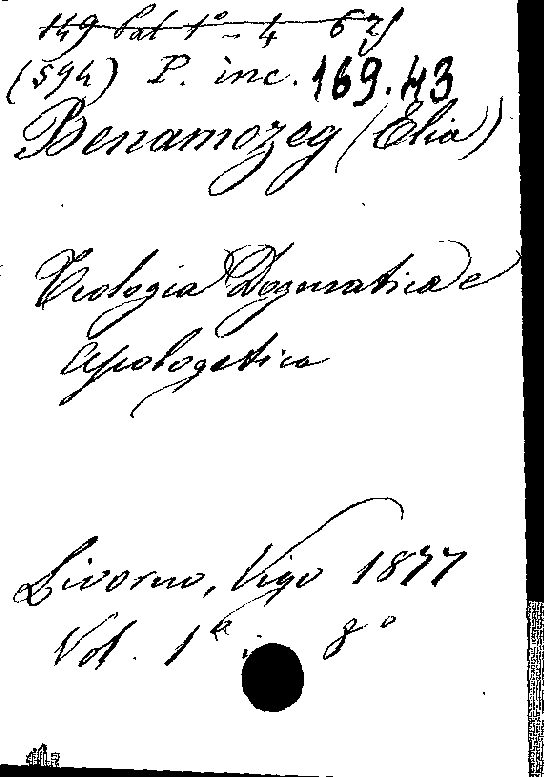 149 Pal 1° - 4 67
(594) P. inc. 169.H3
Benamozeg (Elia)
Teologia Dogmatica e
Apologetica
Livorno, Vigo 1877
Vol. 1° 8°